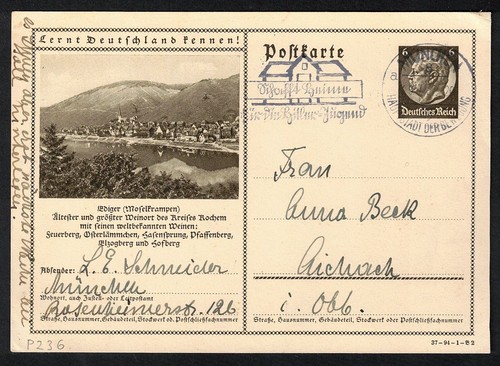 Lernt Deutschland kennen!
Postkarte
6 6
Deutsches Reich
MÜNCHEN
HAUPTSTADT DER BEWEGUNG
Schafft Heime
für die Hitler-Jugend
Ediger (Moselkrampen)
Ältester und größter Weinort des Kreises Kochem
mit seinen weltbekannten Weinen:
Feuerberg, Osterlämmchen, Hasensprung, Pfaffenberg,
Elzogberg und Hofberg
Absender: L. E. Schneider
München
Wohnort, auch Zustell- oder Leitpostamt
Rosenheimerstr. 126
Straße, Hausnummer, Gebäudeteil, Stockwerk od. Postschließfachnummer
Frau
Anna Beck
Aichach
i. Obb.
Straße, Hausnummer, Gebäudeteil, Stockwerk oder Postschließfachnummer
37-94-1-B2
P236